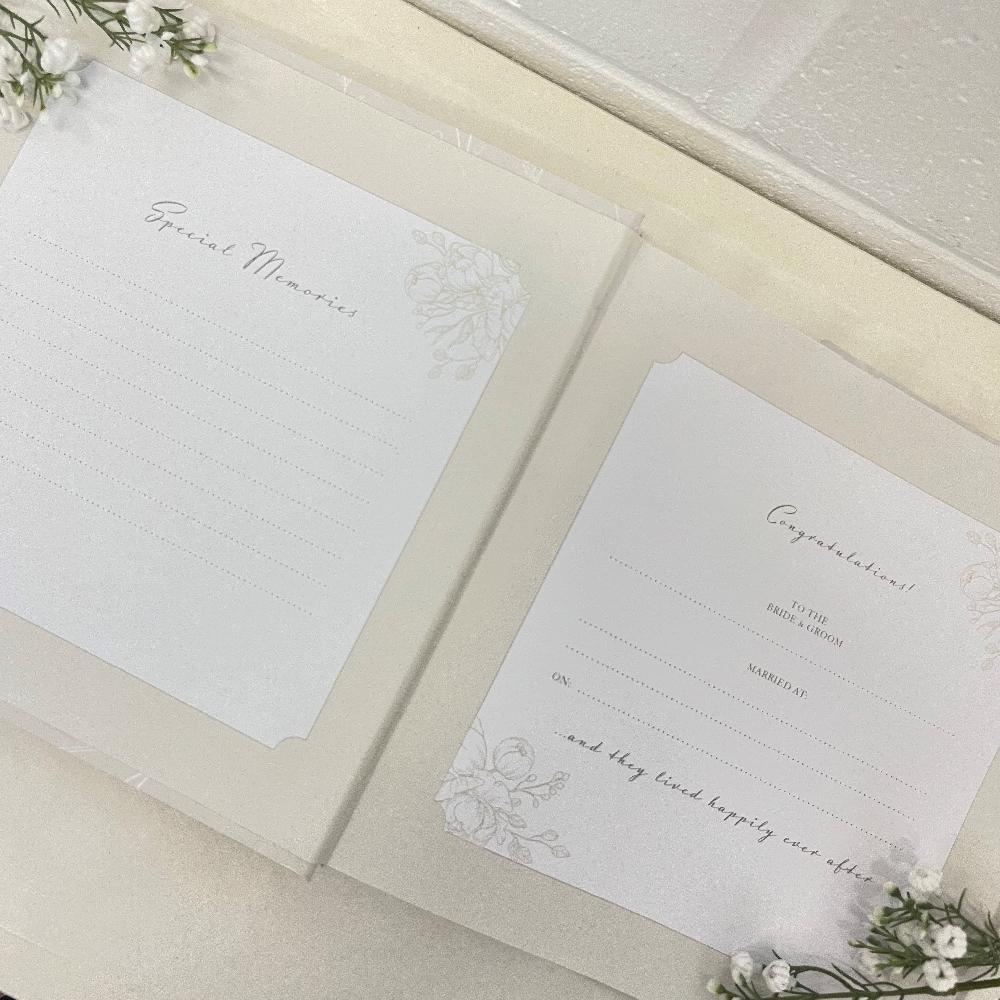 Special Memories
Congratulations!
TO THE
BRIDE & GROOM
MARRIED AT:
ON:
...and they lived happily ever after